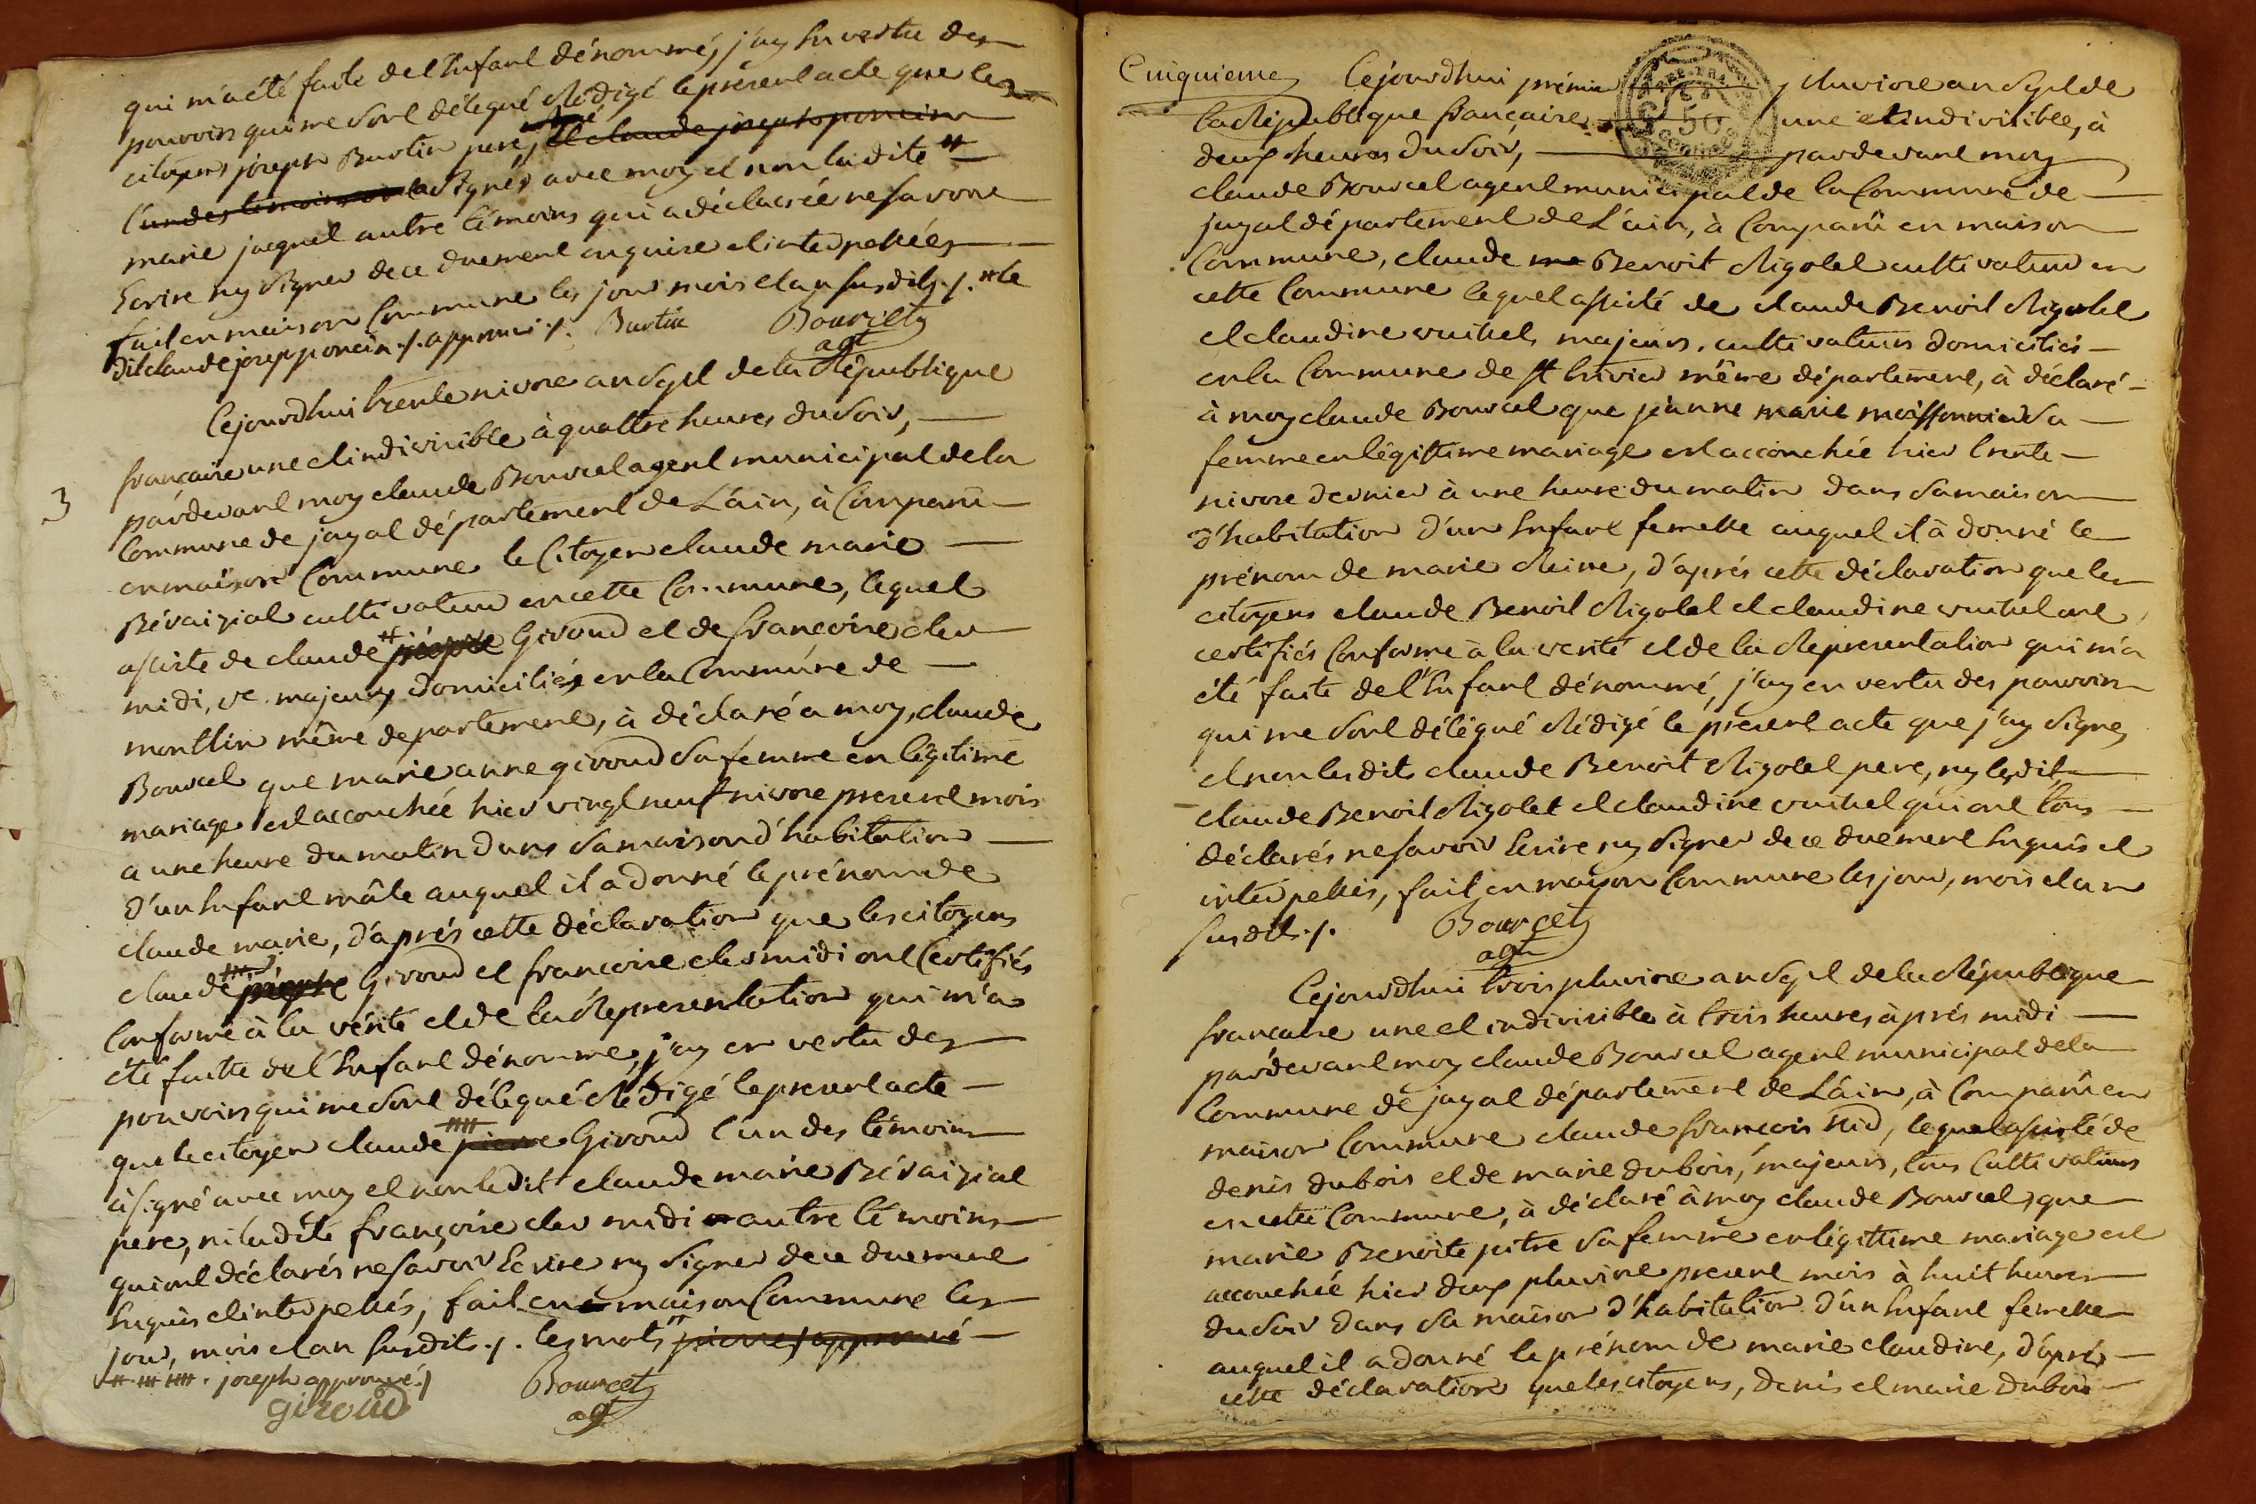 qui m'a été faite de l'Enfant dénommé, j'ay En vertu des
pouvoirs qui me sont délegué Rédigé le présent acte que les
citoyens joseph Burtin pere, et claude joseph poncin
l'un des témoins ont signés avec moy et non la dite #
marie jacquet autre témoins qui a déclarée ne savoir
Ecrire ny signer de ce duement enquise et interpellée
fait en maison Commune les jour mois et an susdits ./. # le
dit claude josep poncin ./. approuvé ./. Burtin Bourcet
agt
Cejourdhui trente nivose an sept de la République
française une et indivisible à quattre heures du soir,
3
pardevant moy claude Bourcet agent municipal de la
Commune de jayat département de L'ain, à Comparû
en maison Commune le Citoyen claude marie
Bévaizial cultivateur en cette Commune, lequel
assisté de claude # Giroud et de françoise cler
midi, ve majeurs domiciliés en la Commune de
montlin même departement, à déclaré a moy, claude
Bourcet que marie anne giroud sa femme en légitime
mariage est accouchée hier vingt neuf nivose present mois
a une heure du matin dans sa maison d'habitation
d'un Enfant mâle auquel il a donné le prénom de
claude marie, d'aprés cette déclaration que les citoyens
claude Giroud et françoise cler midi ont Certifiés
Conforme à la vérité et de la Representation qui m'a
été faitte de l'Enfant dénommé, j'ay en vertu des
pouvoirs qui me sont délegué Rédigé le present acte
que le citoyen claude pierre Giroud l'un des témoins
à signé avec moy et non le dit claude marie Bévaizial
pere, ni la dite françoise cler midi autre témoins
qui ont déclarés ne savoir Ecrire ny signer de ce duement
Enquis et interpellés, fait en maison Commune les
jour, mois et an susdits ./. les mots pierre approuvé
# ## ### . joseph approuvé ./
giroud Bourcet
agt
Cinquieme Cejourdhui prémier pluviose an sept de
la République française une et indivisible, à
50
deux heures du soir, pardevant moy
claude Bourcet agent municipal de la Commune de
jayat département de L'ain, à Comparû en maison
Commune, claude Benoit Rigolet cultivateur en
cette Commune lequel assisté de claude Benoit Rigolet
et claudine vuitul majeurs, cultivateurs domiciliés
en la Commune de St trivier même département, à déclaré
à moy claude Bourcet que jeanne marie moissonnier sa
femme en légittime mariage est accouchée hier trente
nivose dernier à une heure du matin dans sa maison
d'habitation d'un Enfant femelle auquel il à donné le
prénom de marie Reine, d'aprés cette déclaration que les
citoyens claude Benoit Rigolet et claudine vuitul ont
certifiés Conforme à la verité et de la Representation qui m'a
été faite de l'Enfant dénommé, j'ay en vertu des pouvoirs
qui me sont délégué Rédigé le présent acte que j'ay signé
et non les dits claude Benoit Rigolet pere, ny lesdits
claude Benoit Rigolet et claudine vuitul qui ont tous
déclarés ne savoir Ecrire ny signer de ce duement Enquis et
interpellés, fait en mayson Commune les jour, mois et an
susdits ./. Bourcet
agt
Cejourdhui trois pluviose an sept de la République
française une et indivisible à trois heures àprés midi
pardevant moy claude Bourcet agent municipal de la
Commune de jayat département de L'ain, à Comparû en
maison Commune claude françois , lequel assisté de
denis dubois et de marie dubois, majeurs, tous Cultivateurs
en cette Commune, à déclaré à moy claude Bourcet, que
marie Benoite pitre sa femme en légittime mariage est
accouchée hier deux pluviose present mois à huit heures
du soir dans sa maison d'habitation d'un Enfant femelle
auquel il a donné le prénom de marie claudine, d'aprés
cette déclaration que les citoyens, denis et marie dubois